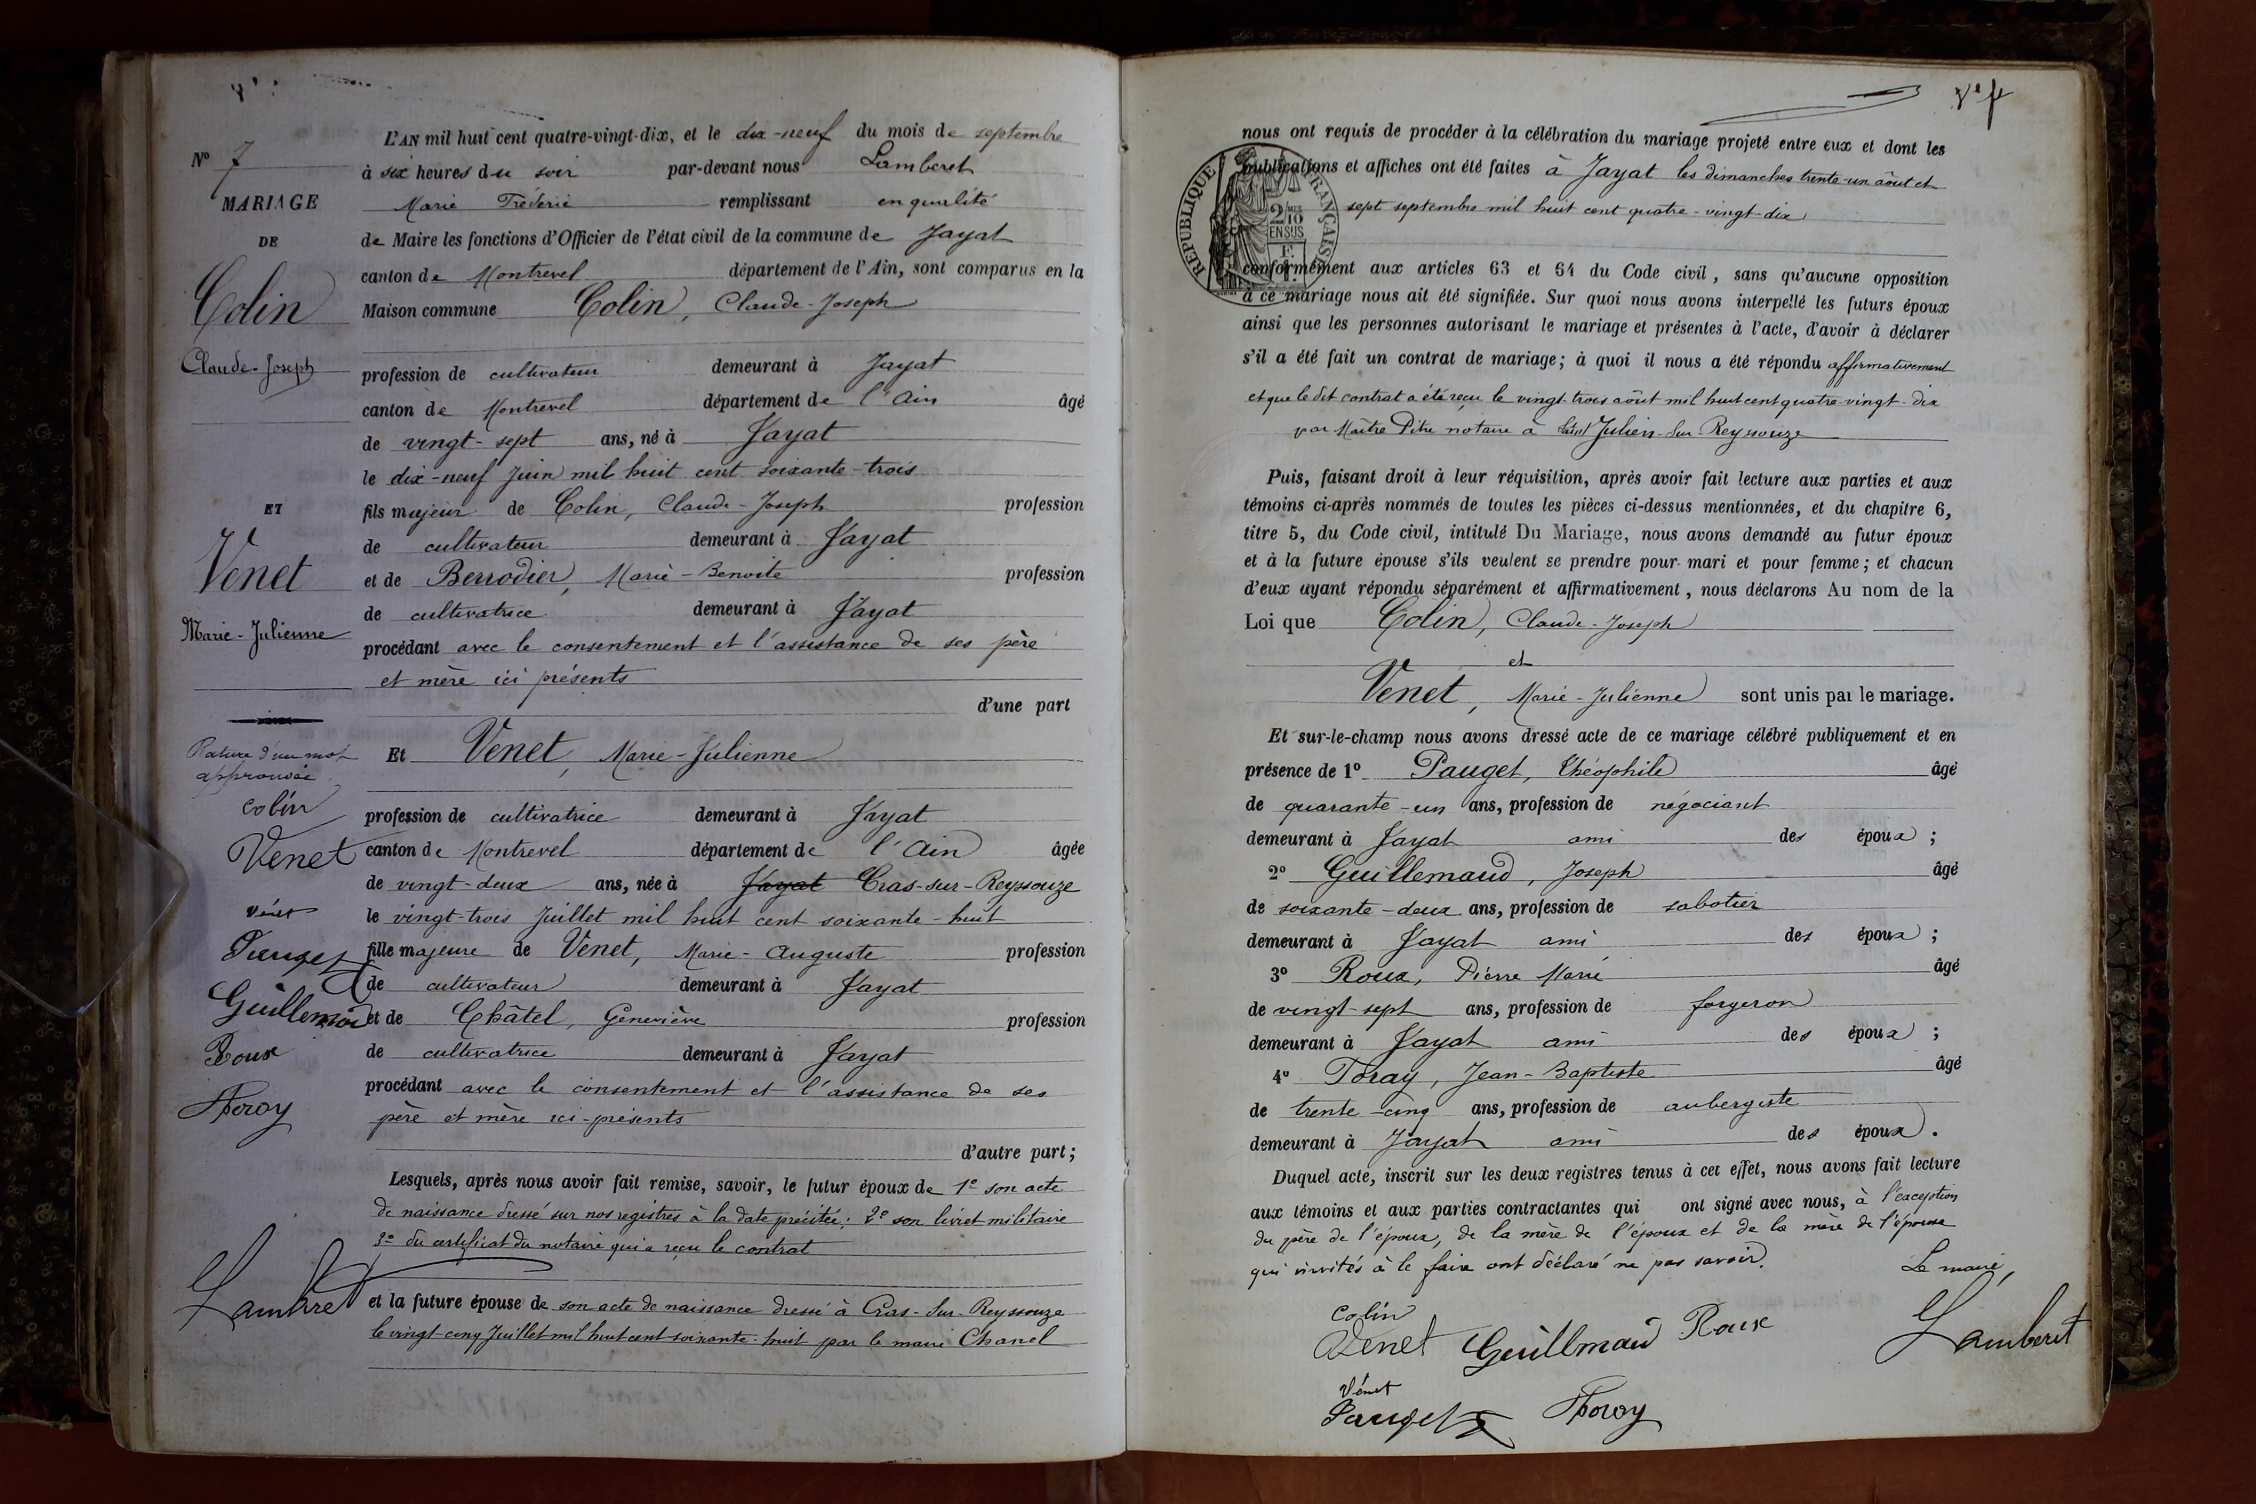 Nº 7
MARIAGE
DE
Colin
Claude-Joseph
ET
Venet
Marie-Julienne
Rature d'un mot
approuvée
colin
Venet
Vénet
Pauget
Guillemaud
Roux
Toray
Lamberet
L'AN mil huit cent quatre-vingt-dix, et le dix-neuf du mois de septembre
à six heures du soir par-devant nous Lamberet
Marie Fréderic remplissant en qualité
de Maire les fonctions d'Officier de l'état civil de la commune de Jayat
canton de Montrevel département de l'Ain, sont comparus en la
Maison commune Colin, Claude-Joseph
profession de cultivateur demeurant à Jayat
canton de Montrevel département de l'Ain âgé
de vingt-sept ans, né à Jayat
le dix-neuf Juin mil huit cent soixante-trois
fils majeur de Colin, Claude-Joseph profession
de cultivateur demeurant à Jayat
et de Berrodier, Marie-Benoite profession
de cultivatrice demeurant à Jayat
procédant avec le consentement et l'assistance de ses père
et mère ici présents
d'une part
Et Venet, Marie-Julienne
profession de cultivatrice demeurant à Jayat
canton de Montrevel département de l'Ain âgée
de vingt-deux ans, née à Jayat Cras-sur-Reyssouze
le vingt-trois Juillet mil huit cent soixante-huit
fille majeure de Venet, Marie-Auguste profession
de cultivateur demeurant à Jayat
et de Châtel, Geneviève profession
de cultivatrice demeurant à Jayat
procédant avec le consentement et l'assistance de ses
père et mère ici-présents
d'autre part;
Lesquels, après nous avoir fait remise, savoir, le futur époux de 1º son acte
de naissance dressé sur nos registres à la date précitée: 2º son livret militaire
3º du certificat du notaire qui a reçu le contrat
et la future épouse de son acte de naissance dressé à Cras-Sur-Reyssouze
le vingt-cinq Juillet mil huit cent soixante-huit par le maire Chanel
nous ont requis de procéder à la célébration du mariage projeté entre eux et dont les
publications et affiches ont été faites à Jayat les dimanches trente-un août et
sept septembre mil huit cent quatre-vingt-dix
REPUBLIQUE FRANÇAISE
2/10
EN SUS
conformément aux articles 63 et 64 du Code civil, sans qu'aucune opposition
à ce mariage nous ait été signifiée. Sur quoi nous avons interpellé les futurs époux
ainsi que les personnes autorisant le mariage et présentes à l'acte, d'avoir à déclarer
s'il a été fait un contrat de mariage; à quoi il nous a été répondu affirmativement
et que le dit contrat a été reçu le vingt-trois août mil huit cent quatre-vingt-dix
par Maître Pitre notaire à Saint Julien-Sur-Reyssouze
Puis, faisant droit à leur réquisition, après avoir fait lecture aux parties et aux
témoins ci-après nommés de toutes les pièces ci-dessus mentionnées, et du chapitre 6,
titre 5, du Code civil, intitulé Du Mariage, nous avons demandé au futur époux
et à la future épouse s'ils veulent se prendre pour mari et pour femme; et chacun
d'eux ayant répondu séparément et affirmativement, nous déclarons Au nom de la
Loi que Colin, Claude-Joseph
et
Venet, Marie-Julienne sont unis par le mariage.
Et sur-le-champ nous avons dressé acte de ce mariage célébré publiquement et en
présence de 1º Pauget, Théophile âgé
de quarante-un ans, profession de négociant
demeurant à Jayat ami des époux;
2º Guillemaud, Joseph âgé
de soixante-deux ans, profession de sabotier
demeurant à Jayat ami des époux;
3º Roux, Pierre Marie âgé
de vingt-sept ans, profession de forgeron
demeurant à Jayat ami des époux;
4º Toray, Jean-Baptiste âgé
de trente-cinq ans, profession de aubergiste
demeurant à Jayat ami des époux.
Duquel acte, inscrit sur les deux registres tenus à cet effet, nous avons fait lecture
aux témoins et aux parties contractantes qui ont signé avec nous, à l'exception
du père de l'époux, de la mère de l'époux et de la mère de l'épouse
qui invités à le faire ont déclaré ne pas savoir.
Le maire,
colin
Venet Guillmaud Roux Lamberet
Vénet
Pauget Toray